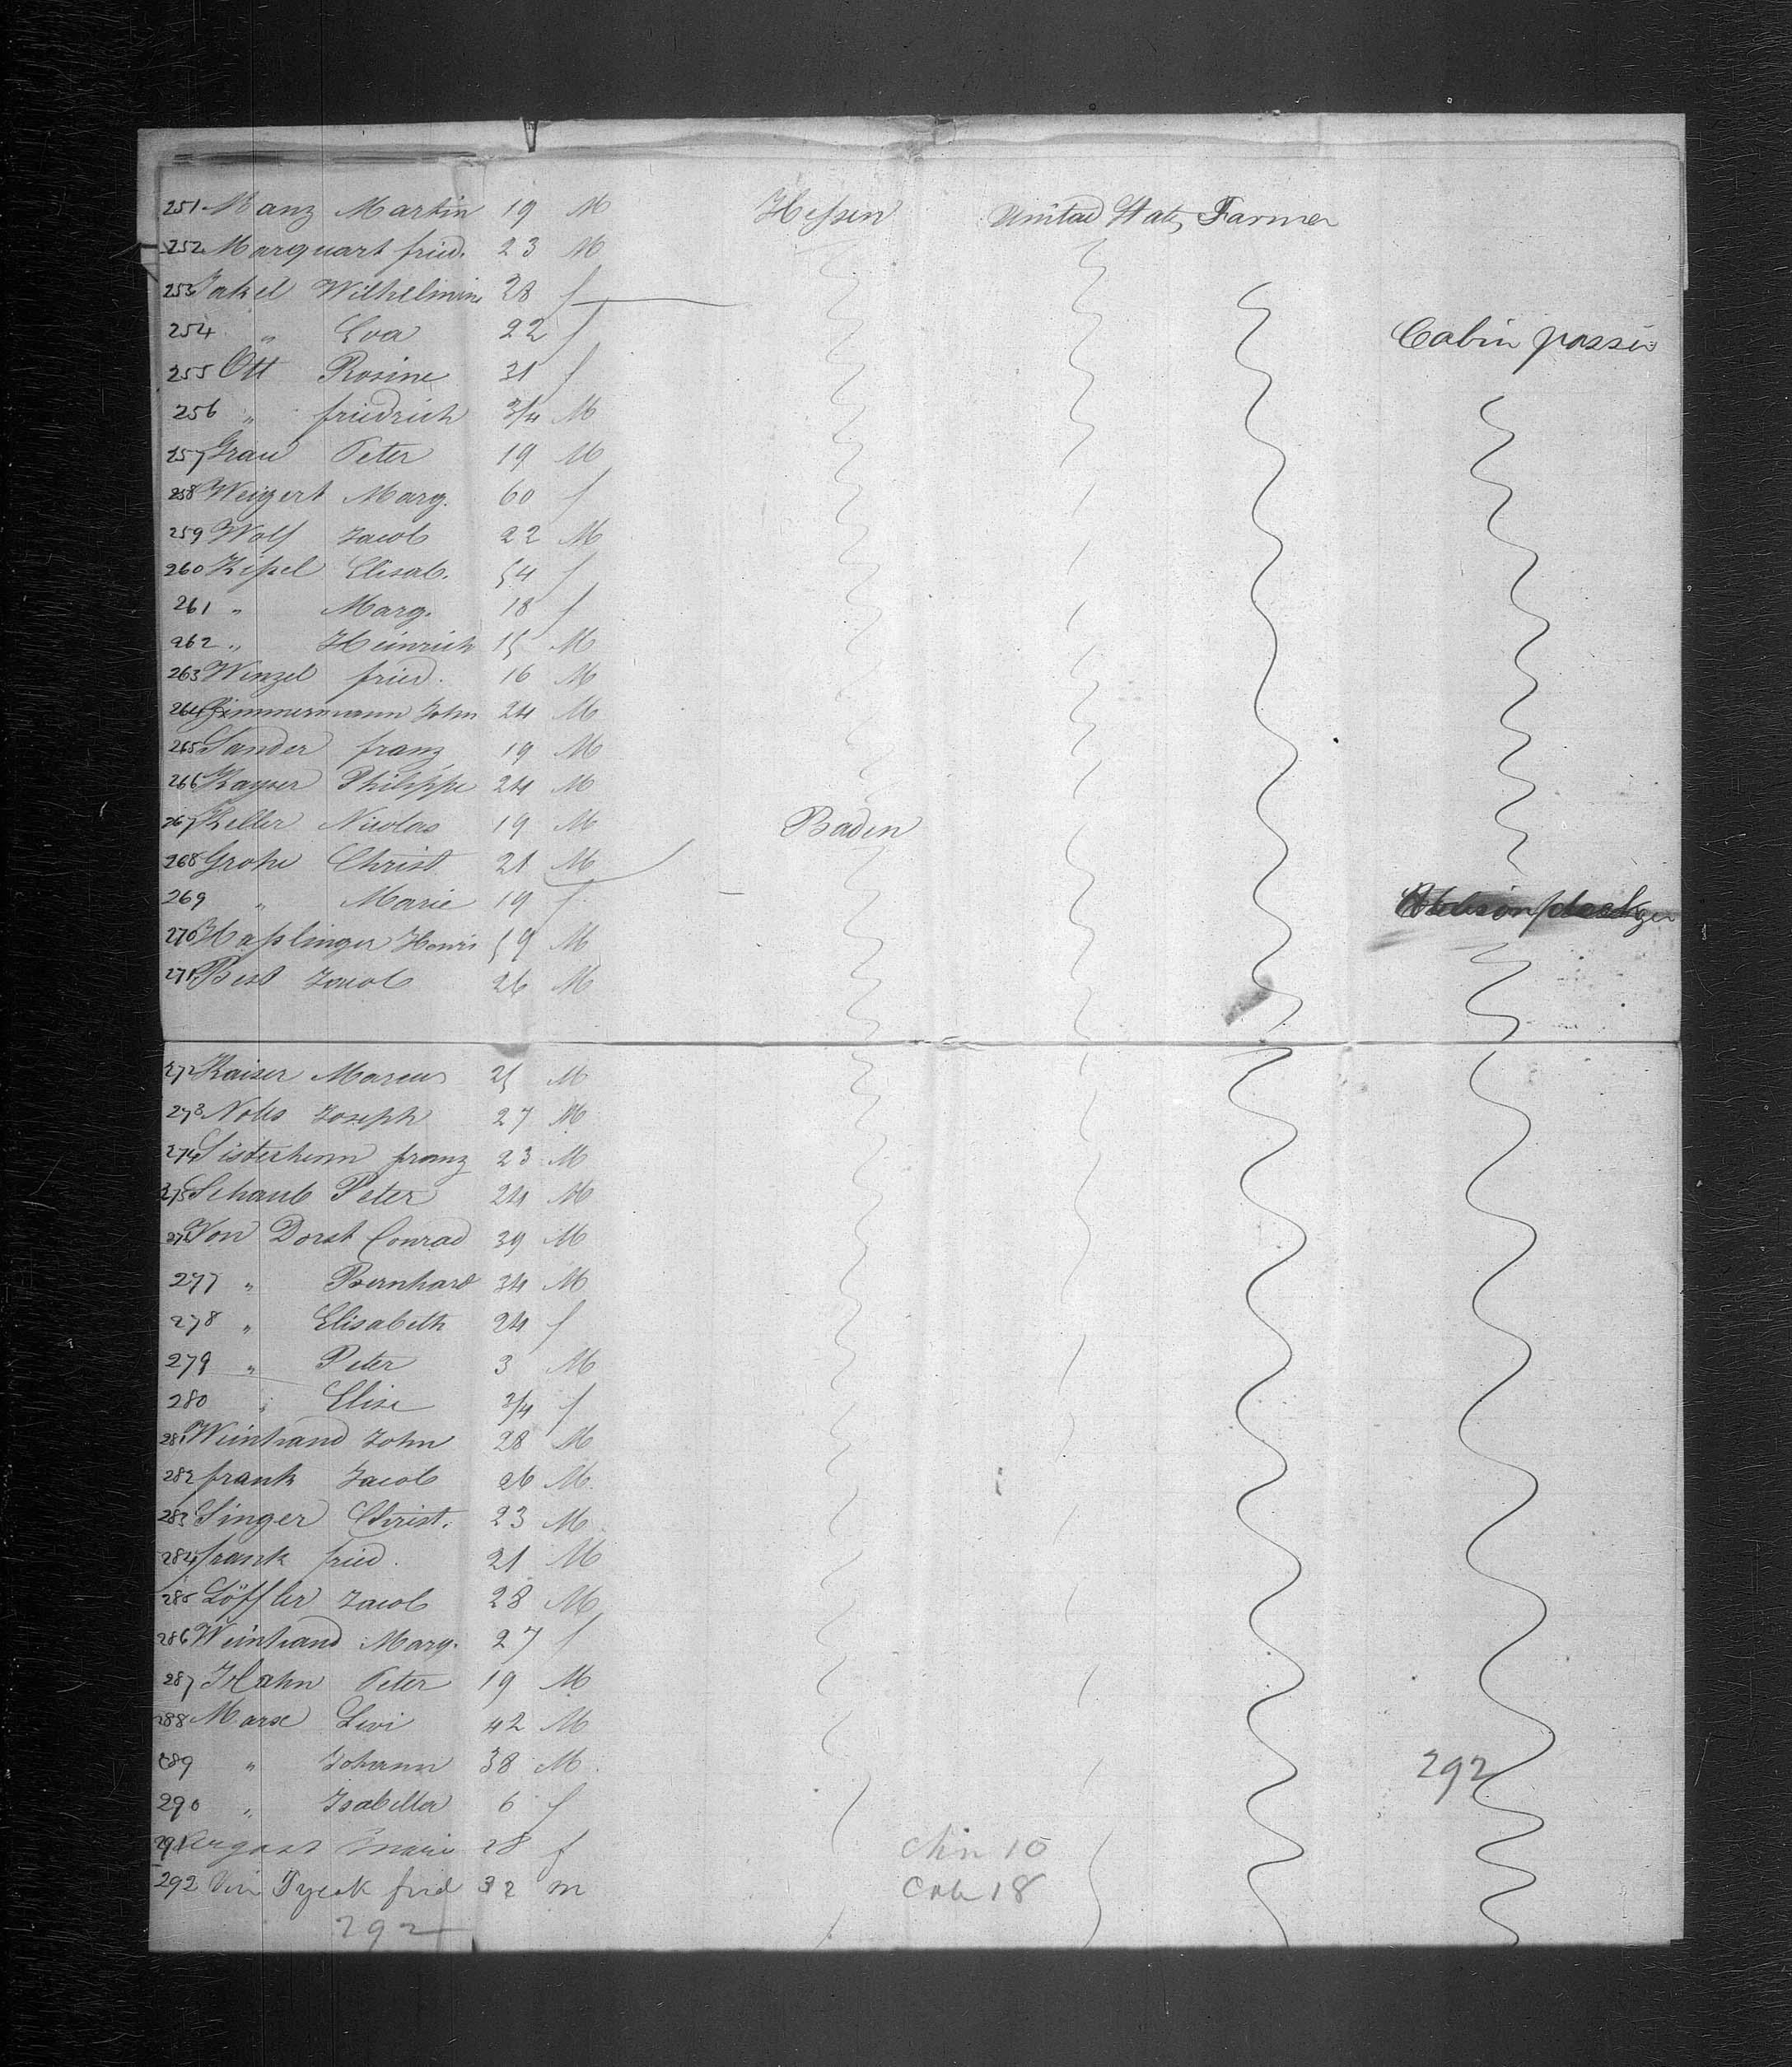 251 Manz Martin 19 M Hessen United States Farmer
252 Marquart fried. 23 M
253 Jakel Wilhelmine 28 f
254 " Eva 22 f Cabin passen
255 Ott Rosine 31 f
256 " friedrich 3/4 M
257 Grau Peter 19 M
258 Weigert Marg. 60 f
259 Wolf Jacob 22 M
260 Kißel Elisab. 54 f
261 " Marg. 18 f
262 " Heinrich 15 M
263 Wenzel fried. 16 M
264 Zimmermann John 24 M
265 Sander franz 19 M
266 Kayser Philippe 24 M
267 Keller Nicolas 19 M Baden
268 Grohe Christ 21 M
269 " Marie 19 f
270 Haßlinger Henri 59 M
271 Best Jacob 26 M
272 Kaiser Marcus 25 M
273 Nobs Joseph 27 M
274 Sisterhenn franz 23 M
275 Schaub Peter 24 M
276 Von Dorst Conrad 39 M
277 " Bernhard 34 M
278 " Elisabeth 24 f
279 " Peter 3 M
280 " Elise 3/4 f
281 Weinhand John 28 M
282 frank Jacob 26 M.
283 Singer Christ. 23 M
284 frank fried. 21 M
285 Löffler Jacob 28 M
286 Weinhand Marg. 27 f
287 Hahn Peter 19 M
288 Marx Levi 42 M
289 " Johann 38 M. 292
290 " Isabella 6 f
291 Marie 28 f 10
292 fried 32 m Cab 18
292